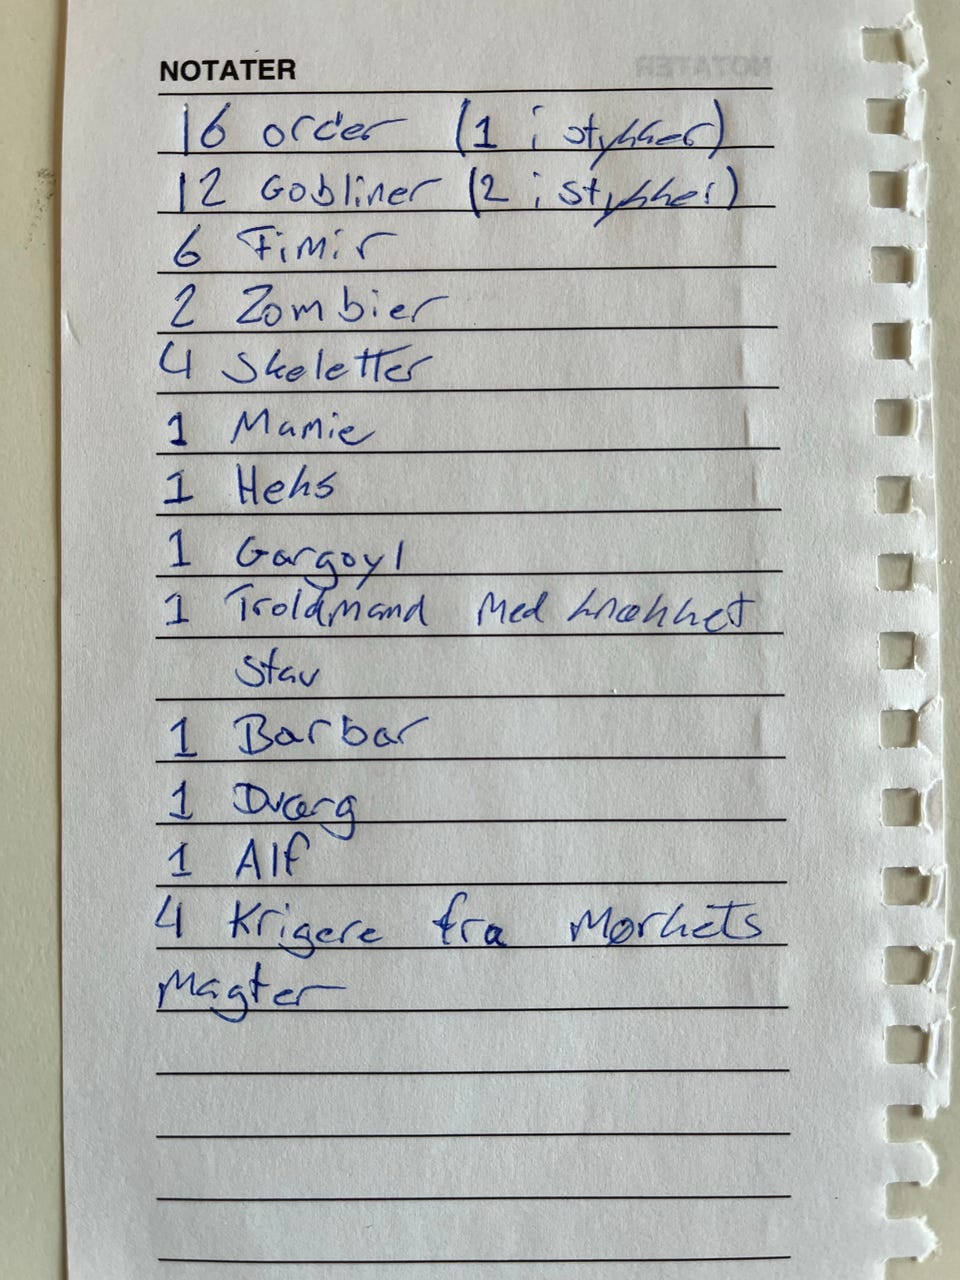 NOTATER
16 orcer (1 i stykker)
12 Gobliner (2 i stykker)
6 Fimir
2 Zombier
4 Skeletter
1 Mamie
1 Heks
1 Gargoyl
1 Troldmand med knækket
stav
1 Barbar
1 Dværg
1 Alf
4 Krigere fra Mørkets
Magter